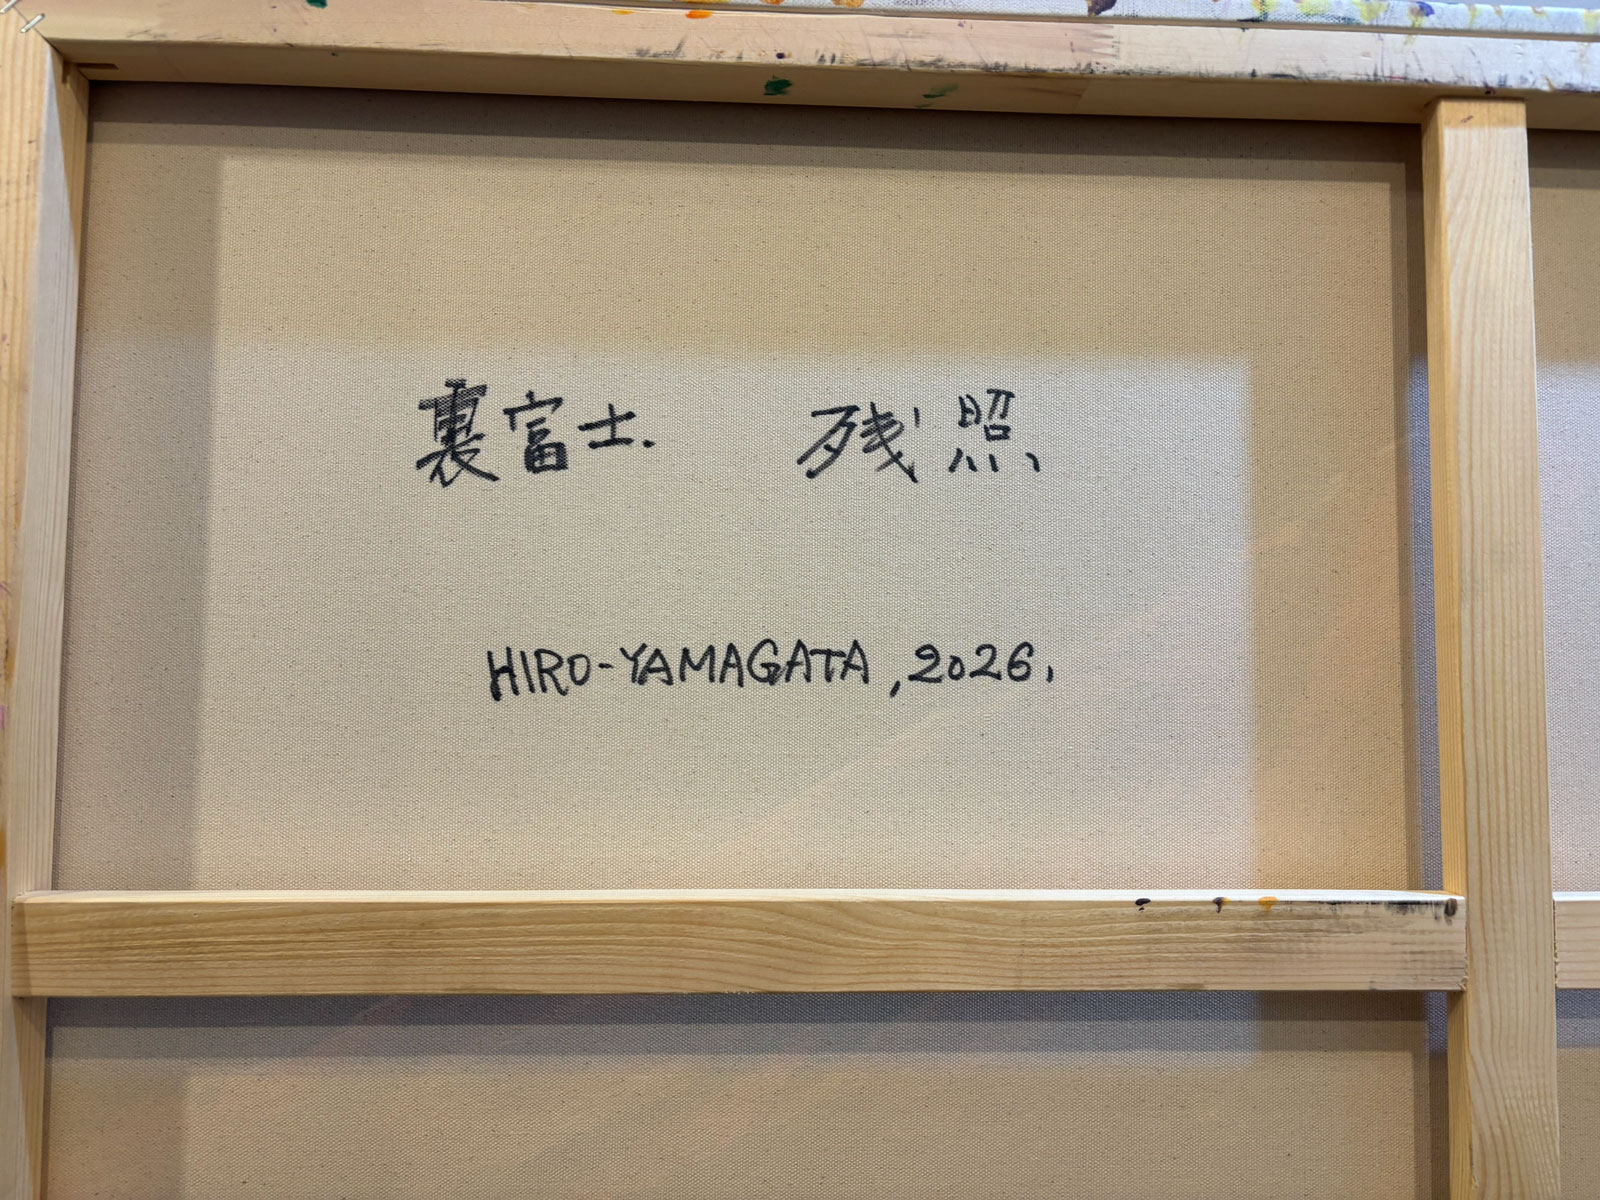 裏富士. 残照
HIRO-YAMAGATA, 2026.